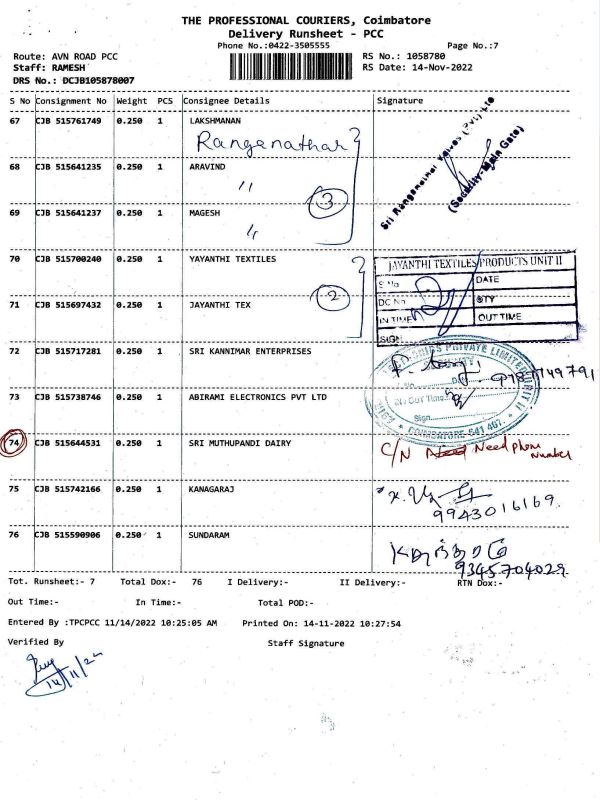 THE PROFESSIONAL COURIERS, Coimbatore
Delivery Runsheet - PCC
Phone No.:0422-3505555
Page No.:7
Route: AVN ROAD PCC
RS No.: 1058780
Staff: RAMESH
RS Date: 14-Nov-2022
DRS No.: DCJB105878007
S No Consignment No Weight PCS Consignee Details Signature
67 CJB 515761749 0.250 1 LAKSHMANAN
Ranganathar
Sri Ranganathar Valves (Pvt) Ltd
(Security-Main Gate)
68 CJB 515641235 0.250 1 ARAVIND
"
3
69 CJB 515641237 0.250 1 MAGESH
"
70 CJB 515700240 0.250 1 YAYANTHI TEXTILES
JAYANTHI TEXTILES/PRODUCTS UNIT II
S.No DATE
DC No QTY
IN TIME OUT TIME
SIGN
2
71 CJB 515697432 0.250 1 JAYANTHI TEX
72 CJB 515717281 0.250 1 SRI KANNIMAR ENTERPRISES
PRIVATE LIMITED UNIT II
Out Time
Sign
COIMBATORE 641 407
73 CJB 515738746 0.250 1 ABIRAMI ELECTRONICS PVT LTD
74 CJB 515644531 0.250 1 SRI MUTHUPANDI DAIRY
C/N Need Need phone
Number
75 CJB 515742166 0.250 1 KANAGARAJ
9943016169
76 CJB 515590906 0.250 1 SUNDARAM
9345704029
Tot. Runsheet:- 7 Total Dox:- 76 I Delivery:- II Delivery:- RTN Dox:-
Out Time:- In Time:- Total POD:-
Entered By :TPCPCC 11/14/2022 10:25:05 AM Printed On: 14-11-2022 10:27:54
Verified By Staff Signature
14/11/22